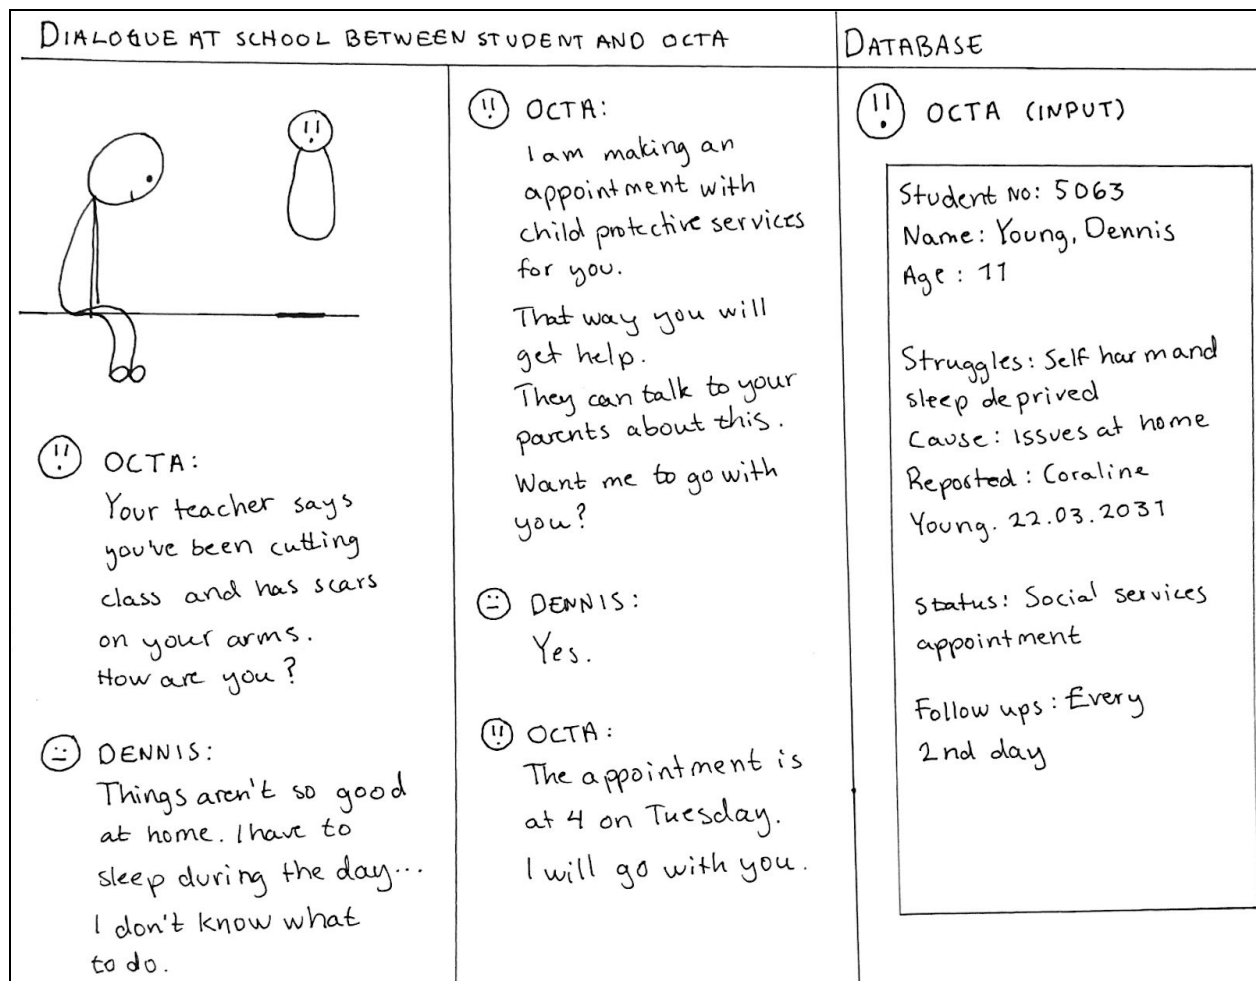 DIALOGUE AT SCHOOL BETWEEN STUDENT AND OCTA
OCTA:
Your teacher says
you've been cutting
class and has scars
on your arms.
How are you?
DENNIS:
Things aren't so good
at home. I have to
sleep during the day...
I don't know what
to do.
OCTA:
I am making an
appointment with
child protective services
for you.
That way you will
get help.
They can talk to your
parents about this.
Want me to go with
you?
DENNIS:
Yes.
OCTA:
The appointment is
at 4 on Tuesday.
I will go with you.
DATABASE
OCTA (INPUT)
Student No: 5063
Name: Young, Dennis
Age: 11
Struggles: Self harm and
sleep deprived
Cause: Issues at home
Reported: Coraline
Young. 22.03.2031
Status: Social services
appointment
Follow ups: Every
2nd day